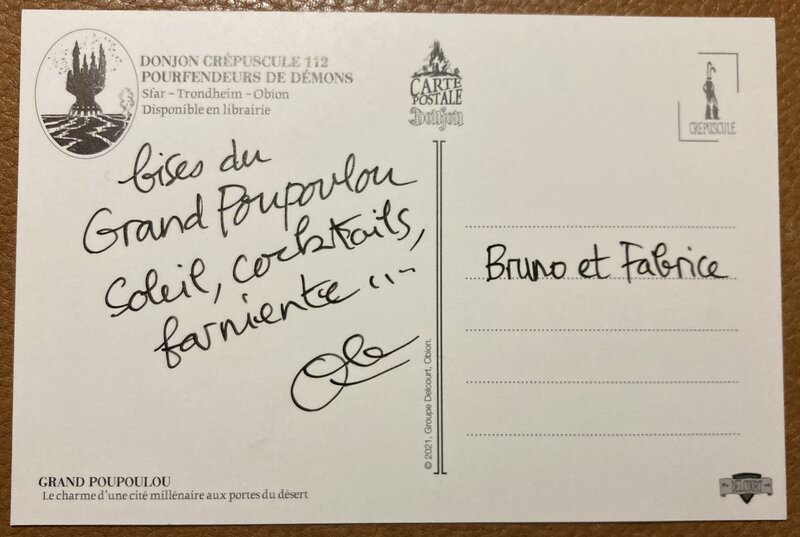 DONJON CRÉPUSCULE 112
POURFENDEURS DE DÉMONS
Sfar – Trondheim – Obion
Disponible en librairie
CARTE
POSTALE
Donjon
CRÉPUSCULE
bises du
Grand Poupoulou
Soleil, cocktails,
farniente ...
Bruno et Fabrice
© 2021, Groupe Delcourt, Obion.
GRAND POUPOULOU
Le charme d'une cité millénaire aux portes du désert
DELCOURT